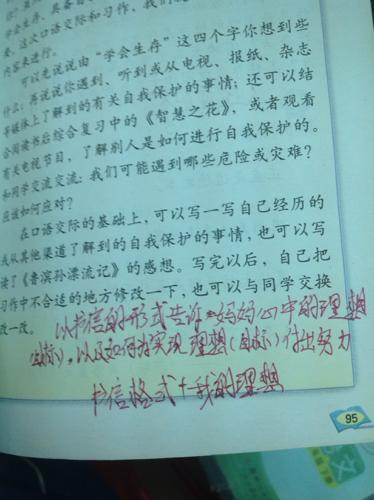 学会生存，具备自
要。这次口语交际和习作，我们就
内容来进行。
可以先说说由“学会生存”这四个字你想到些
什么；再说说你遇到、听到或从电视、报纸、杂志
等媒体上了解到的有关自我保护的事情；还可以结
合阅读书后综合复习中的《智慧之花》，或者观看
有关电视节目，了解别人是如何进行自我保护的。
和同学交流交流：我们可能遇到哪些危险或灾难？
应该如何应对？
在口语交际的基础上，可以写一写自己经历的
或从其他渠道了解到的自我保护的事情，也可以写
读了《鲁滨孙漂流记》的感想。写完以后，自己把
习作中不合适的地方修改一下，也可以与同学交换
改一改。
以书信的形式告诉妈妈心中的理想
（目标），以及如何为实现理想（目标）付出努力
书信格式＋我的理想
95